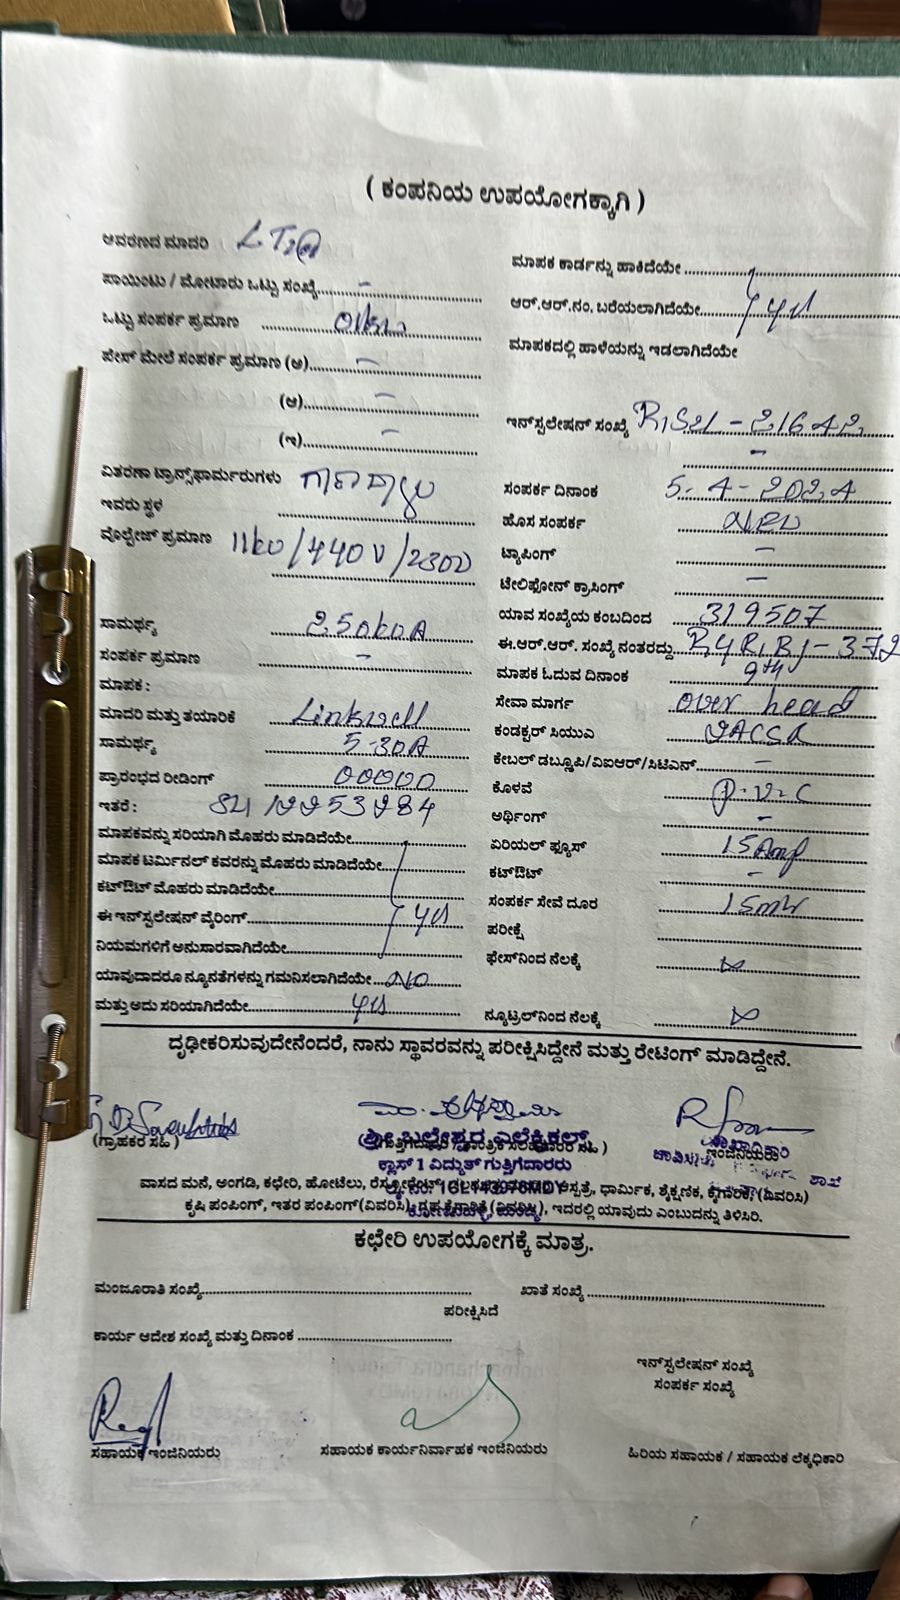 ( ಕಂಪನಿಯ ಉಪಯೋಗಕ್ಕಾಗಿ )
ಆವರಣದ ಮಾದರಿ
ಪಾಯಿಂಟು / ಮೋಟಾರು ಒಟ್ಟು ಸಂಖ್ಯೆ.......... –
ಒಟ್ಟು ಸಂಪರ್ಕ ಪ್ರಮಾಣ ..........
ಪೇಸ್ ಮೇಲೆ ಸಂಪರ್ಕ ಪ್ರಮಾಣ (ಅ).......... –
(ಆ).......... –
(ಇ).......... –
ವಿತರಣಾ ಟ್ರಾನ್ಸ್‌ಫಾರ್ಮರುಗಳು
ಇವರು ಸ್ಥಳ ..........
ವೊಲ್ಟೇಜ್ ಪ್ರಮಾಣ 11kv/440v/230v
ಸಾಮರ್ಥ್ಯ 250kvA
ಸಂಪರ್ಕ ಪ್ರಮಾಣ –
ಮಾಪಕ :
ಮಾದರಿ ಮತ್ತು ತಯಾರಿಕೆ Linkwell
ಸಾಮರ್ಥ್ಯ 5-30A
ಪ್ರಾರಂಭದ ರೀಡಿಂಗ್ 00000
ಇತರೆ :
ಮಾಪಕವನ್ನು ಸರಿಯಾಗಿ ಮೊಹರು ಮಾಡಿದೆಯೇ..........
ಮಾಪಕ ಟರ್ಮಿನಲ್ ಕವರನ್ನು ಮೊಹರು ಮಾಡಿದೆಯೇ..........
ಕಟ್‌ಔಟ್ ಮೊಹರು ಮಾಡಿದೆಯೇ..........
ಈ ಇನ್‌ಸ್ಟಲೇಷನ್ ವೈರಿಂಗ್.......... yes
ನಿಯಮಗಳಿಗೆ ಅನುಸಾರವಾಗಿದೆಯೇ..........
ಯಾವುದಾದರೂ ನ್ಯೂನತೆಗಳನ್ನು ಗಮನಿಸಲಾಗಿದೆಯೇ.... NO
ಮತ್ತು ಅದು ಸರಿಯಾಗಿದೆಯೇ.......... yes
ಮಾಪಕ ಕಾರ್ಡನ್ನು ಹಾಕಿದೆಯೇ ..........
ಆರ್.ಆರ್.ನಂ. ಬರೆಯಲಾಗಿದೆಯೇ.......... yes
ಮಾಪಕದಲ್ಲಿ ಹಾಳೆಯನ್ನು ಇಡಲಾಗಿದೆಯೇ
ಇನ್‌ಸ್ಟಲೇಷನ್ ಸಂಖ್ಯೆ
–
ಸಂಪರ್ಕ ದಿನಾಂಕ 5-4-2024
ಹೊಸ ಸಂಪರ್ಕ New
ಟ್ಯಾಪಿಂಗ್ –
ಟೇಲಿಫೋನ್ ಕ್ರಾಸಿಂಗ್ –
ಯಾವ ಸಂಖ್ಯೆಯ ಕಂಬದಿಂದ 319507
ಈ.ಆರ್.ಆರ್. ಸಂಖ್ಯೆ ನಂತರದ್ದು
ಮಾಪಕ ಓದುವ ದಿನಾಂಕ 9th
ಸೇವಾ ಮಾರ್ಗ over head
ಕಂಡಕ್ಟರ್ ಸಿಯುಎ
ಕೇಬಲ್ ಡಬ್ಲ್ಯೂಪಿ/ವಿಐಆರ್/ಸಿಟಿಎಸ್.......... –
ಕೊಳವೆ P.V.C
ಅರ್ಥಿಂಗ್ –
ಏರಿಯಲ್ ಫ್ಯೂಸ್ 15Amp
ಕಟ್‌ಔಟ್ –
ಸಂಪರ್ಕ ಸೇವೆ ದೂರ
ಪರೀಕ್ಷೆ
ಫೇಸ್‌ನಿಂದ ನೆಲಕ್ಕೆ
ನ್ಯೂಟ್ರಲ್‌ನಿಂದ ನೆಲಕ್ಕೆ
ದೃಢೀಕರಿಸುವುದೇನೆಂದರೆ, ನಾನು ಸ್ಥಾವರವನ್ನು ಪರೀಕ್ಷಿಸಿದ್ದೇನೆ ಮತ್ತು ರೇಟಿಂಗ್ ಮಾಡಿದ್ದೇನೆ.
(ಗ್ರಾಹಕರ ಸಹಿ )
ಇಂಜಿನಿಯರು
ಕ್ಲಾಸ್ 1 ವಿದ್ಯುತ್ ಗುತ್ತಿಗೆದಾರರು
ವಾಸದ ಮನೆ, ಅಂಗಡಿ, ಕಛೇರಿ, ಹೋಟೆಲು, ಧಾರ್ಮಿಕ, ಶೈಕ್ಷಣಿಕ, ಕೈಗಾರಿಕೆ, (ವಿವರಿಸಿ)
ಕೃಷಿ ಪಂಪಿಂಗ್, ಇತರ ಪಂಪಿಂಗ್(ವಿವರಿಸಿ), ಇದರಲ್ಲಿ ಯಾವುದು ಎಂಬುದನ್ನು ತಿಳಿಸಿರಿ.
ಕಛೇರಿ ಉಪಯೋಗಕ್ಕೆ ಮಾತ್ರ.
ಮಂಜೂರಾತಿ ಸಂಖ್ಯೆ.......... ಖಾತೆ ಸಂಖ್ಯೆ ..........
ಪರೀಕ್ಷಿಸಿದೆ
ಕಾರ್ಯ ಆದೇಶ ಸಂಖ್ಯೆ ಮತ್ತು ದಿನಾಂಕ ..........
ಇನ್‌ಸ್ಟಲೇಷನ್ ಸಂಖ್ಯೆ
ಸಂಪರ್ಕ ಸಂಖ್ಯೆ
ಸಹಾಯಕ ಇಂಜಿನಿಯರು ಸಹಾಯಕ ಕಾರ್ಯನಿರ್ವಾಹಕ ಇಂಜಿನಿಯರು ಹಿರಿಯ ಸಹಾಯಕ / ಸಹಾಯಕ ಲೆಕ್ಕಧಿಕಾರಿ